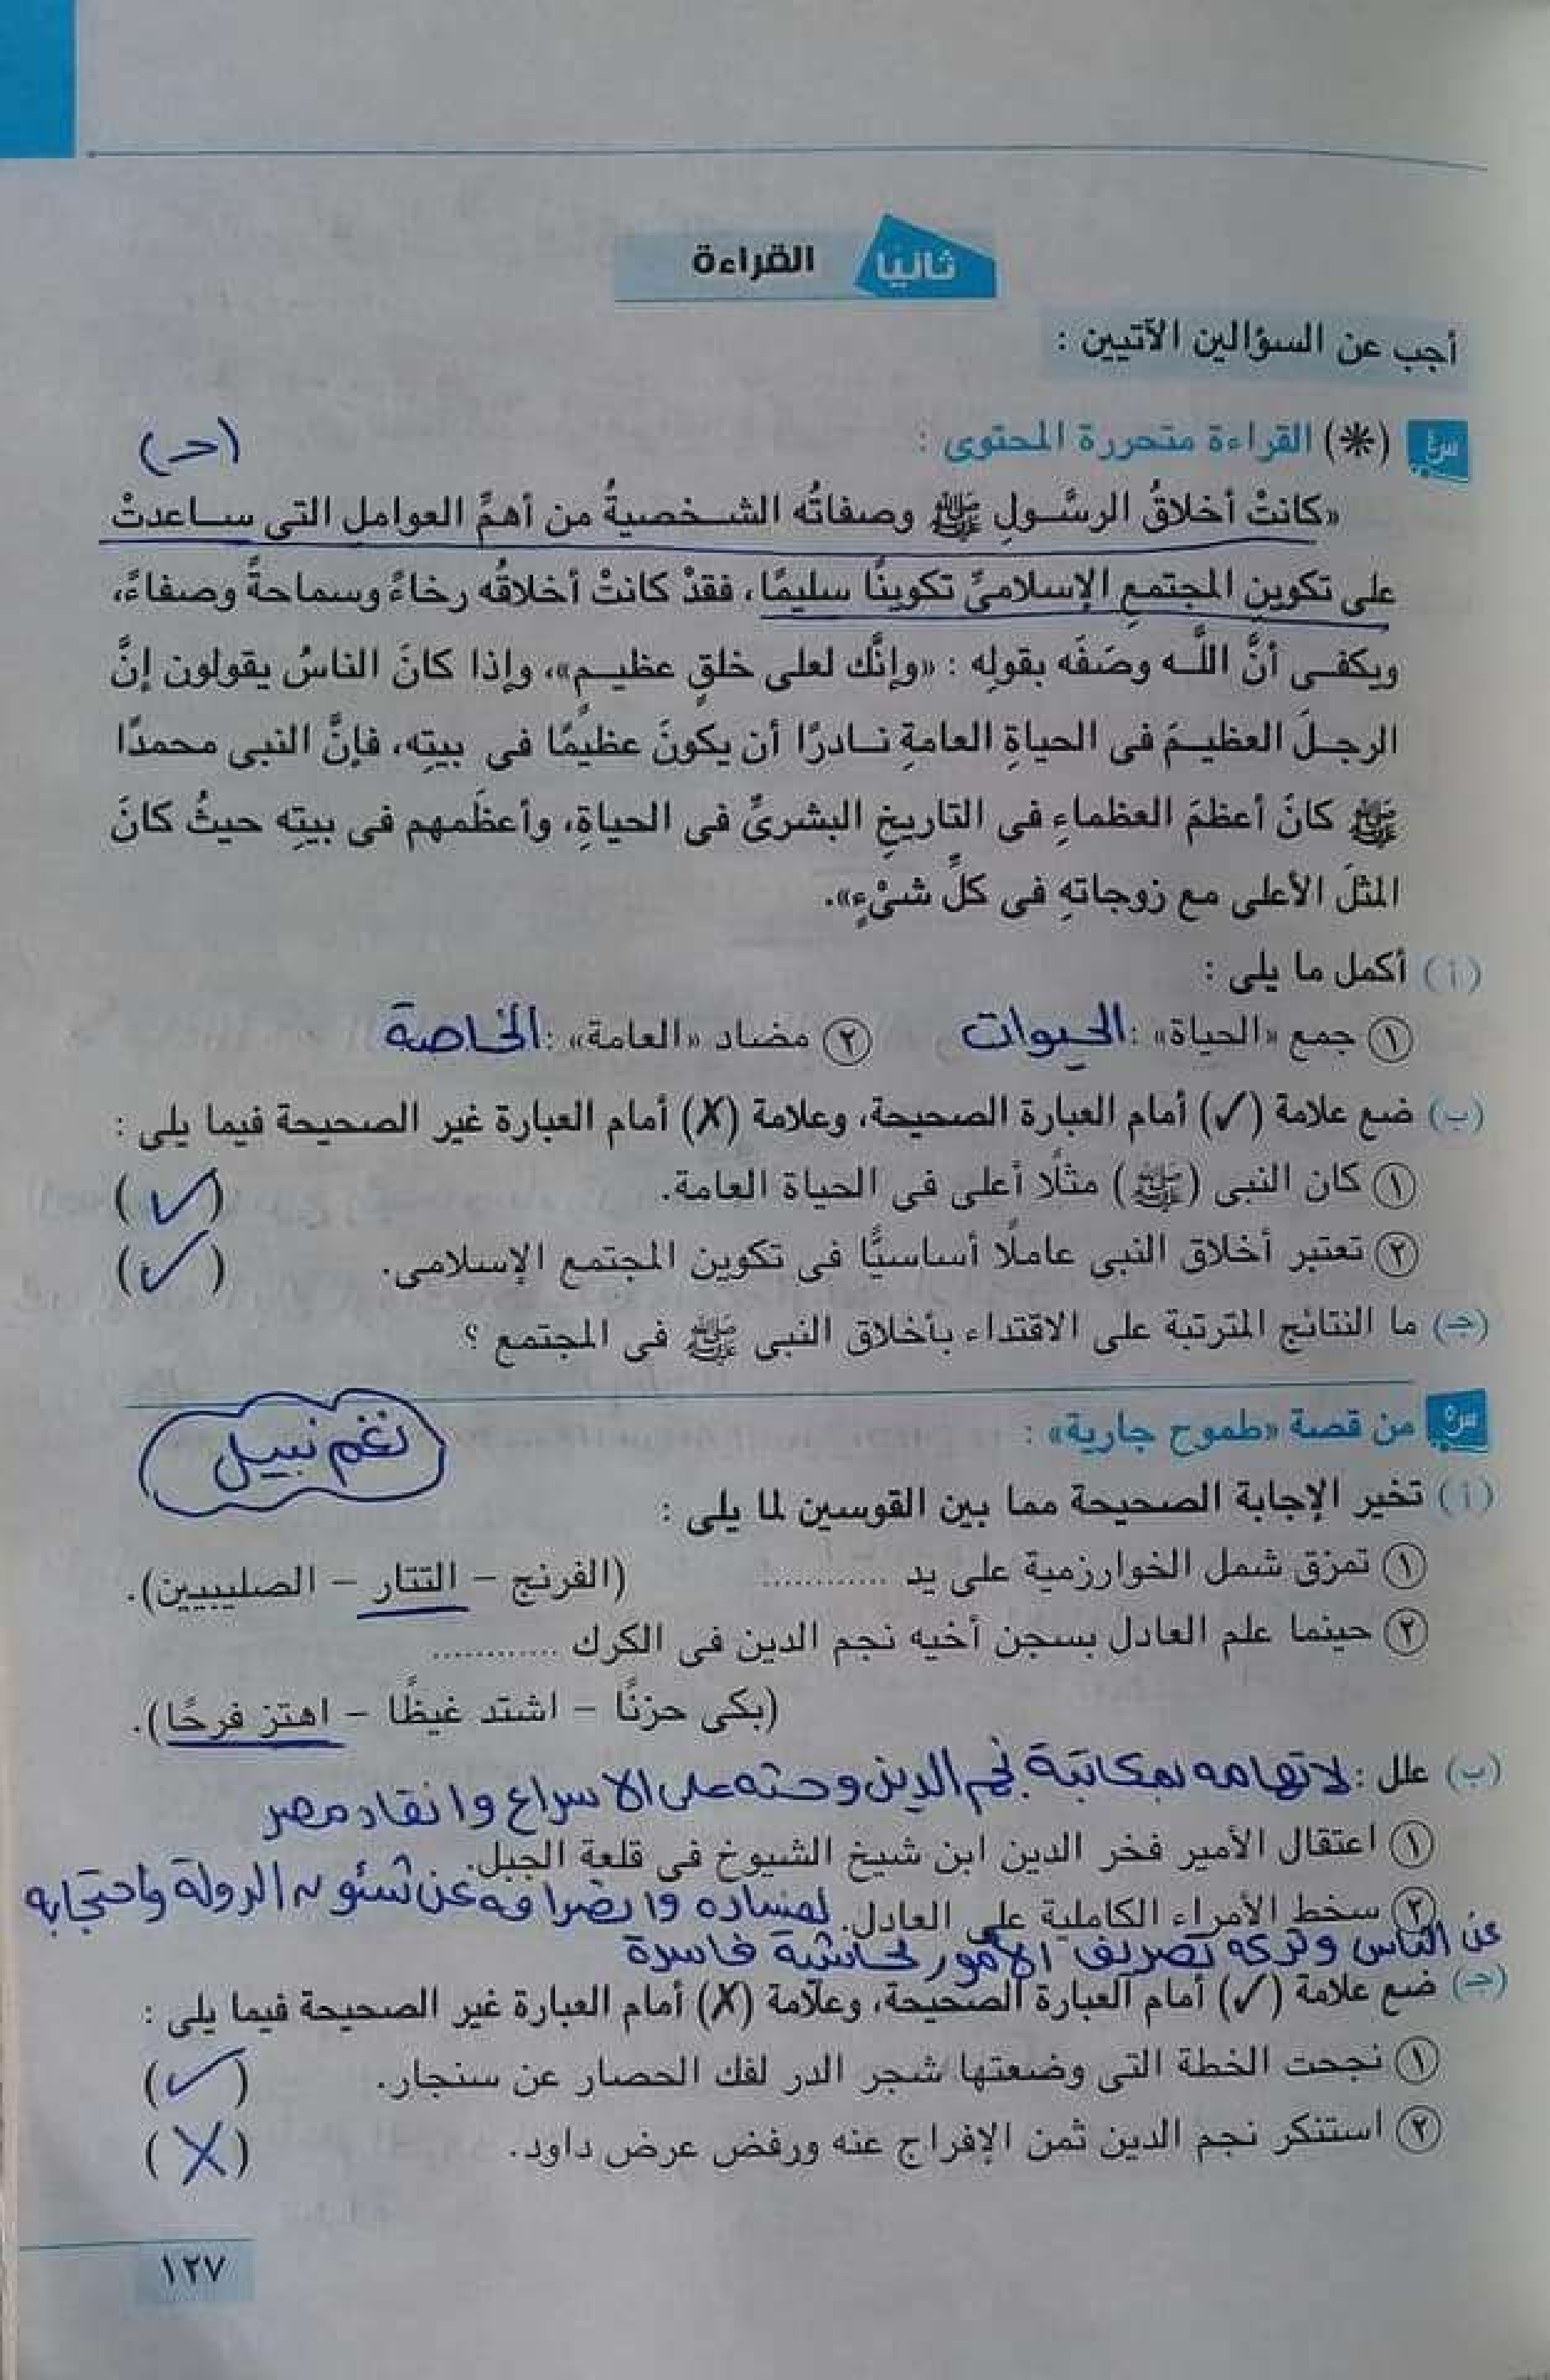 ثانيا القراءة
أجب عن السؤالين الآتيين :
س٤ (*) القراءة متحررة المحتوى :
(حـ)
«كانتْ أخلاقُ الرسُـولِ ﷺ وصفاتُه الشـخصيةُ من أهمِّ العوامل التى سـاعدتْ
على تكوينِ المجتمعِ الإسلامىِّ تكوينًا سليمًا، فقدْ كانتْ أخلاقُه رخاءً وسماحةً وصفاءً،
ويكفـى أنَّ اللَّـه وصَفَه بقولِه : «وإنَّك لعلى خلقٍ عظيـمٍ»، وإذا كانَ الناسُ يقولون إنَّ
الرجـلَ العظيـمَ فى الحياةِ العامةِ نـادرًا أن يكونَ عظيمًا فى بيتِه، فإنَّ النبى محمدًا
ﷺ كانَ أعظمَ العظماءِ فى التاريخِ البشرىِّ فى الحياةِ، وأعظَمهم فى بيتِه حيثُ كانَ
المثلَ الأعلى مع زوجاتهِ فى كلِّ شىْءٍ».
(أ) أكمل ما يلى :
١ جمع «الحياة» : الحيوات ٢ مضاد «العامة» : الخاصة
(ب) ضع علامة (✓) أمام العبارة الصحيحة، وعلامة (✗) أمام العبارة غير الصحيحة فيما يلى :
١ كان النبى (ﷺ) مثلًا أعلى فى الحياة العامة. (✓)
٢ تعتبر أخلاق النبى عاملًا أساسيًّا فى تكوين المجتمع الإسلامى. (✓)
(جـ) ما النتائج المترتبة على الاقتداء بأخلاق النبى ﷺ فى المجتمع ؟
س٥ من قصة «طموح جارية» :
نغم نبيل
(أ) تخير الإجابة الصحيحة مما بين القوسين لما يلى :
١ تمزق شمل الخوارزمية على يد ............ (الفرنج – التتار – الصليبيين).
٢ حينما علم العادل بسجن أخيه نجم الدين فى الكرك ............
(بكى حزنًا – اشتد غيظًا – اهتز فرحًا).
(ب) علل : لاتهامه بمكاتبة نجم الدين وحثه على الاسراع وانقاد مصر
١ اعتقال الأمير فخر الدين ابن شيخ الشيوخ فى قلعة الجبل.
٢ سخط الأمراء الكاملية على العادل. لفساده وانصرافه عن شئون الدولة واحتجابه
عن الناس وتركه تصريف الأمور لحاشية فاسدة
(جـ) ضع علامة (✓) أمام العبارة الصحيحة، وعلامة (✗) أمام العبارة غير الصحيحة فيما يلى :
١ نجحت الخطة التى وضعتها شجر الدر لفك الحصار عن سنجار. (✓)
٢ استنكر نجم الدين ثمن الإفراج عنه ورفض عرض داود. (✗)
١٢٧